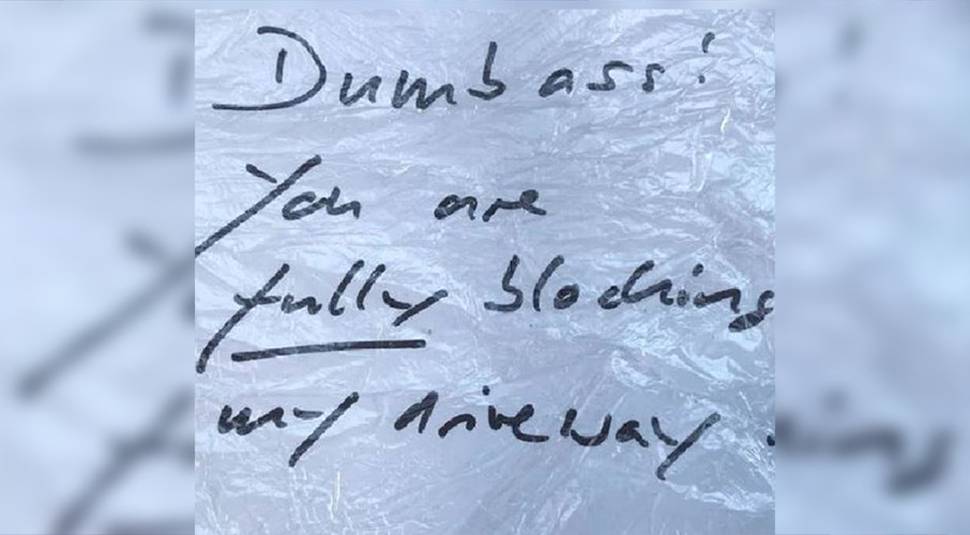 Dumbass!
You are
fully blocking
my driveway.